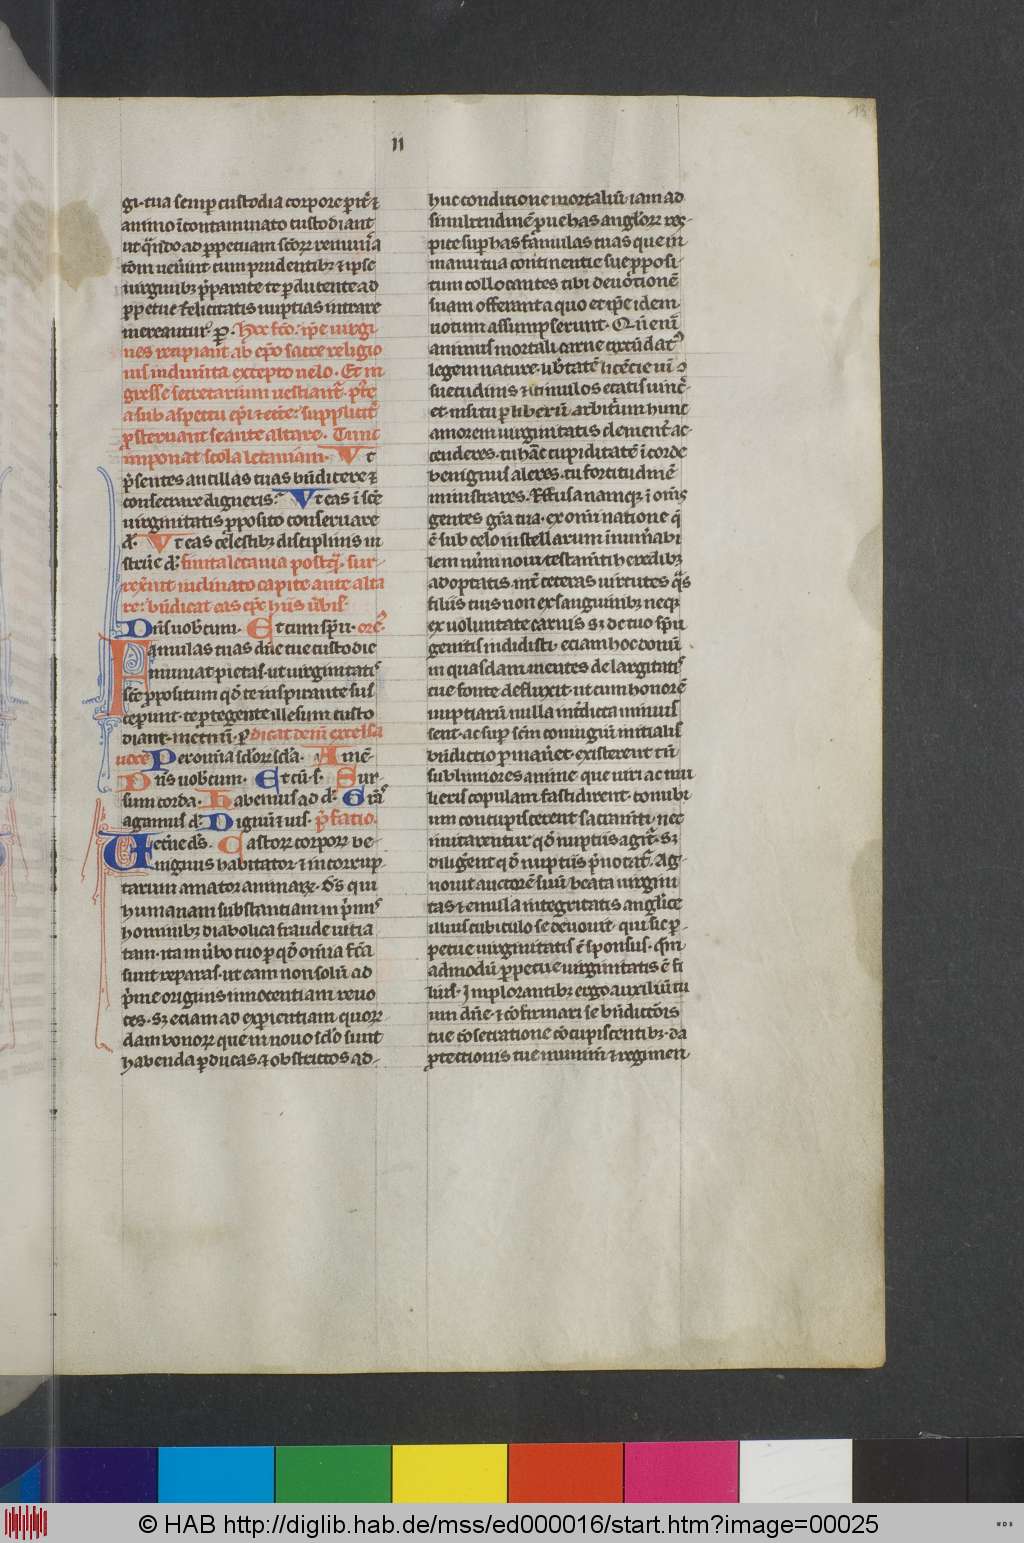 13
II
gi. tua semp custodia corpore pit̄ ⁊
animo ĩcontaminato custodiant
ut qñdo ad ppetuam scōrꝝ remun̄a
tōm uen̄int cum prudentibꝫ ⁊ ipse
uirguibꝫ p̄parate te pducente ad
ppetue felicitatis nuptias intrare
mereantur. P. Hoc fc̄o. ip̄e uirgi
nes recipiant ab ep̄o sacre religio
nis indum̄ta excepto uelo. Et in
gresse secretarium uestiant̄. p
a sub aspectu ep̄i ⁊ supplicit̄
p̄sternant se ante altare. Tunc
imponat scola letaniam. Vt
p̄sentes ancillas tuas bn̄dicere ⁊
consecrare digneris. Vt eas ĩ scē
uirginitatis pposito conseruare
d̄. Vt eas celestibꝫ disciplinis in
strūe d̄. finita letania postq̄ sur
rex̄int inclinato capite ante alta
re: bn̄dicat eas ep̄c hiis u̇bis.
Dn̄s uobcum. Et cum sp̄u. ore.
Famulas tuas dn̄e tue custodie
muniat pietas. ut uirginitatis
scē ppositum qd̄ te inspirante sus
ceperunt. te ptegente illesum custo
diant. met nūi. p dicat deni excelsa
uoce Per omia sclorꝝ scla. Amē.
Dn̄s uobcum. Et cū s. Sur
sum corda. Habemus ad d̄. Grās
agamus d̄. Dignū ⁊ ius. p̄fatio.
Et̄ne ds. Castorꝝ corporꝝ be
nignus habitator ⁊ incorrup
tarum amator animarꝝ. ds qui
humanam substantiam in p̄mis
hominibꝫ diabolica fraude uitia
tam. ita in u̇bo tuo p qd̄ omia fc̄a
sunt reparas. ut eam non solū ad
p̄me originis innocentiam reuo
ces. sꝫ eciam ad expientiam quorꝝ
dam bonorꝝ que in nouo sclo sunt
habenda pducas. ⁊ obstrictos ad
huc conditione mortaliū. iam ad
similitudinē pue has anglorꝝ res
pice sup has famulas tuas que in
manu tua continentie sue pposi
tum collocantes tibi deuōtionē
suam offerant a quo et ip̄e idem
uotum assumpserunt. Qn̄ enī
animus mortali carne circūdatꝰ
legem nature. lib̄tatē licēcie uī ꝯ
suetudinis ⁊ stimulos etatis uinc̄.
et nisi tu p liberū arbit̄um hunc
amorem uirginitatis clement̄ ac
cenderes. tu hāc cupiditatē ĩ corde
benignus aleres. tu fortitudinē
ministrares. Effusa namqꝫ ĩ om̄s
gentes gr̄a tua. ex omi natione q̄
ē sub celo in stellarum īnum̄abi
lem num̄m noui testam̄ti heredibꝫ
adoptatis. int̄ ceteras uirtutes q̄s
filiis tuis non ex sanguinibꝫ neqꝫ
ex uoluntate carnis sꝫ de tuo sp̄u
genitis indidisti. eciam hoc donū
in quasdam mentes de largitatis
tue fonte defluxit. ut cum honorē
nuptiarū nulla int̄dicta minuis
sent. ac sup scm̄ coniugiū initialis
bn̄dictio pman̄et. existerent tn̄
sublimiores anime que uiri ac mu
lieris copulam fastidirent. conubi
um concupiscerent sacram̄ti. nec
imitarentur qd̄ nuptiis agit̄. sꝫ
diligent qd̄ nuptiis p̄notat̄. Ag
nouit auctorē suū beata uirgini
tas ⁊ emula integritatis anglice
illius cubiculo se deuouit. qui sic p
petue uirginitatis ē sponsus. qm̄
admodū ppetue uirginitatis ē fi
lius. Implorantibꝫ ergo auxiliū tu
um dn̄e ⁊ cōfirmari se bn̄dictiōis
tue cōsecratione cōcupiscentibꝫ. da
ptectionis tue munim̄ ⁊ regimen
© HAB http://diglib.hab.de/mss/ed000016/start.htm?image=00025